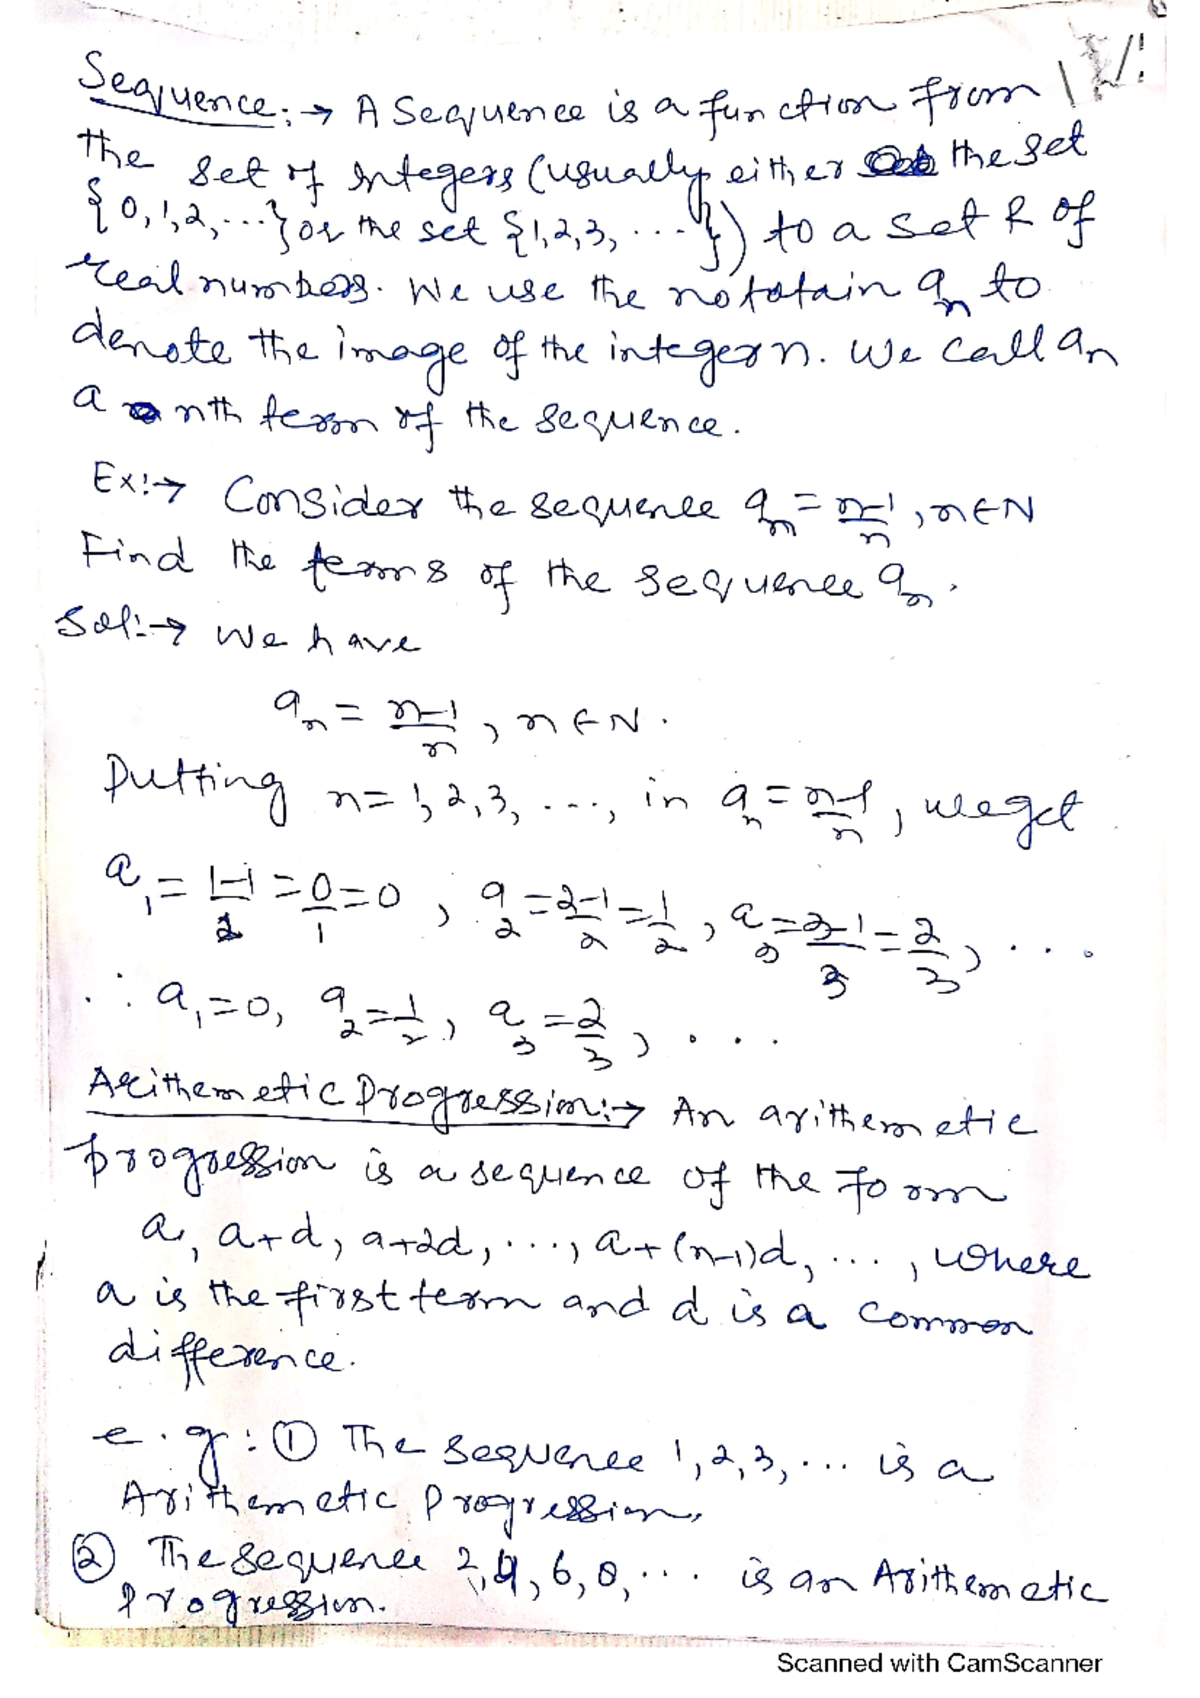 Sequence:→ A Sequence is a function from
the set of Integers (usually either the set
{0,1,2,...} or the set {1,2,3, ...}) to a set R of
real numbers. We use the notatain aₙ to
denote the image of the integer n. We call aₙ
a nth term of the sequence.
Ex:→ Consider the sequence aₙ = n-1/n, n∈N
Find the terms of the sequence aₙ.
Sol:→ We have
aₙ = n-1/n, n∈N.
Putting n = 1, 2, 3, ..., in aₙ = n-1/n, we get
a₁ = 1-1/1 = 0/1 = 0, a₂ = 2-1/2 = 1/2, a₃ = 3-1/3 = 2/3, ...
∴ a₁=0, a₂=1/2, a₃=2/3, ...
Arithemetic Progression:→ An arithemetic
progression is a sequence of the form
a, a+d, a+2d, ..., a+(n-1)d, ..., where
a is the first term and d is a common
difference.
e.g: ① The sequence 1,2,3,... is a
Arithemetic Progression.
② The sequence 2,4,6,8,... is an Arithemetic
Progression.
Scanned with CamScanner